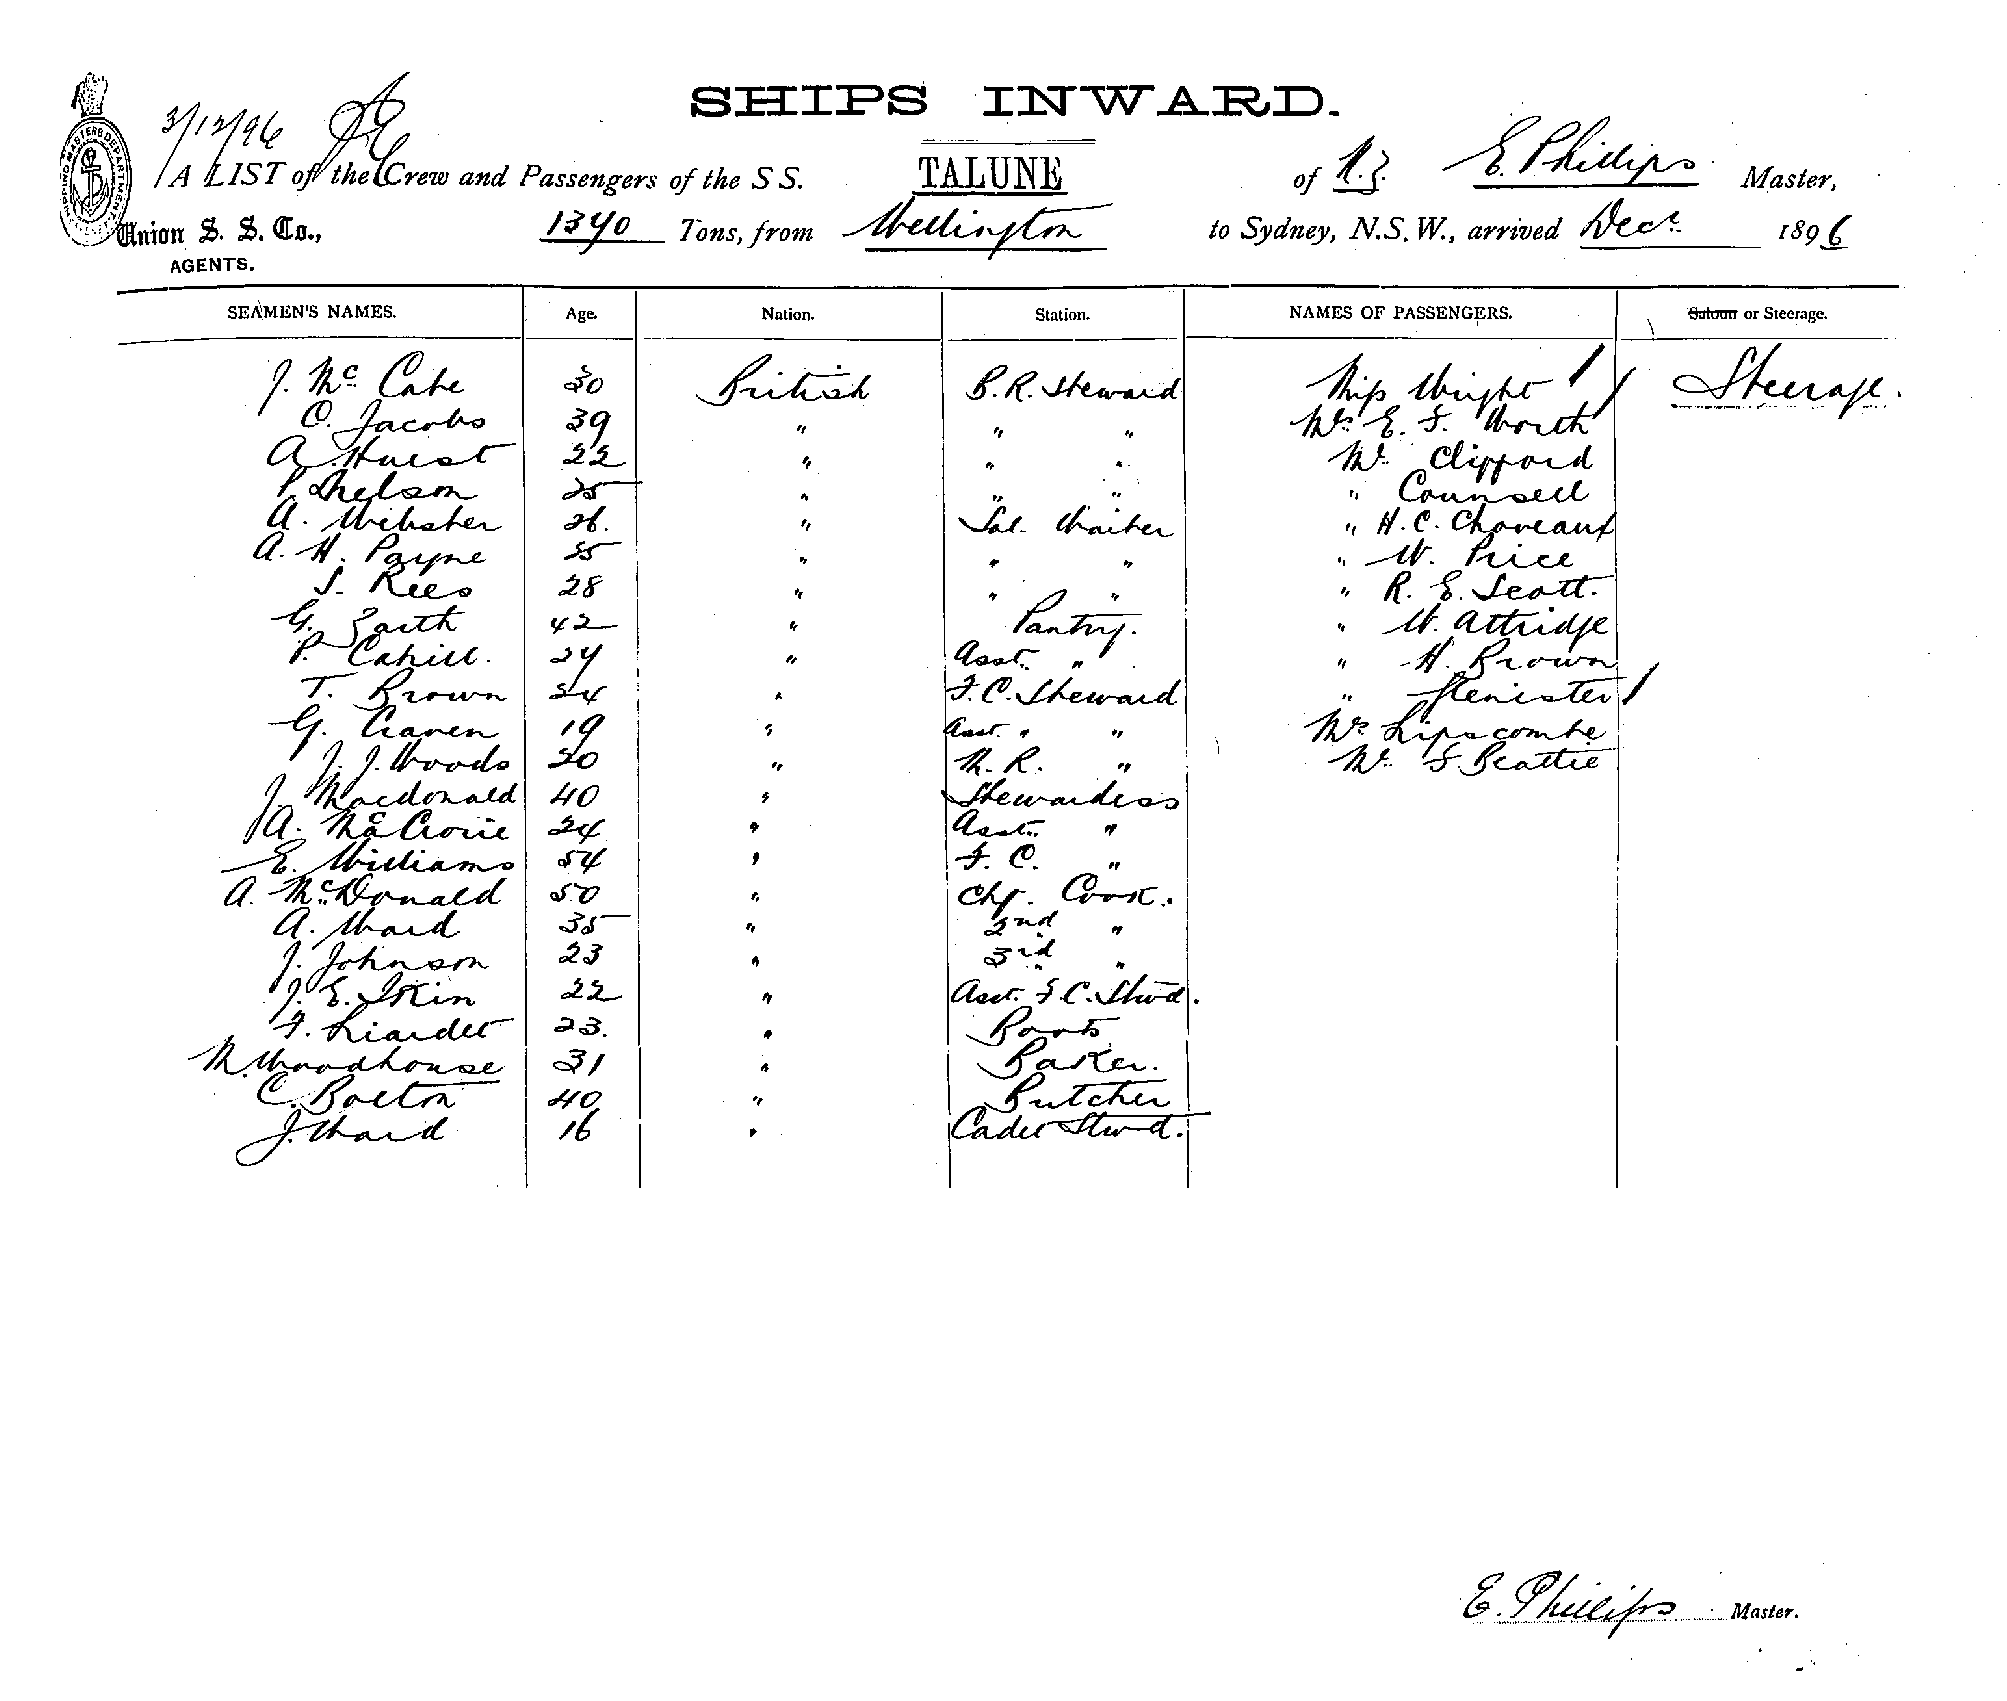 SHIPS INWARD.
3/12/96
A LIST of the Crew and Passengers of the S S. TALUNE of N.Z. E. Phillips Master,
SHIPPING MASTERS DEPARTMENT
Union S. S. Co., 1370 Tons, from Wellington to Sydney, N.S.W., arrived Decr. 1896
AGENTS.
SEAMEN'S NAMES. Age. Nation. Station. NAMES OF PASSENGERS. Saloon or Steerage.
J. McCabe 30 British B.R. Steward Miss Wright Steerage.
C. Jacobs 39 " " " Mrs E. F. Worth
A. Hurst 22 " " " Mr. Clifford
Nelson 25 " " " " Counsell
A. Webster 26. " Sal. Waiter " H. C. Choveaux
A. H. Payne 25 " " " " W. Price
S. Rees 28 " " " " R. E. Scott.
G. Garth 42 " Pantry. " W. Attridge
P. Cahill. 27 " Asst. " " H. Brown
T. Brown 24 " F.C. Steward "
G. Craven 19 " Asst. " " Mrs Lipscombe
J. J. Woods 20 " M. R. " Mr. F. Beattie
J. Macdonald 40 " Stewardess
A. McCrorie 24 " Asst. "
E. Williams 54 " F. C. "
A. McDonald 50 " Chf. Cook.
A. Ward 35 " 2nd "
J. Johnson 23 " 3rd "
J. E. Iskin 22 " Asst. F.C. Stwd.
F. Liardet 23. " Boots
M. Woodhouse 31 " Baker.
C. Bolton 40 " Butcher
J. Ward 16 " Cadet Stwd.
E. Phillips Master.